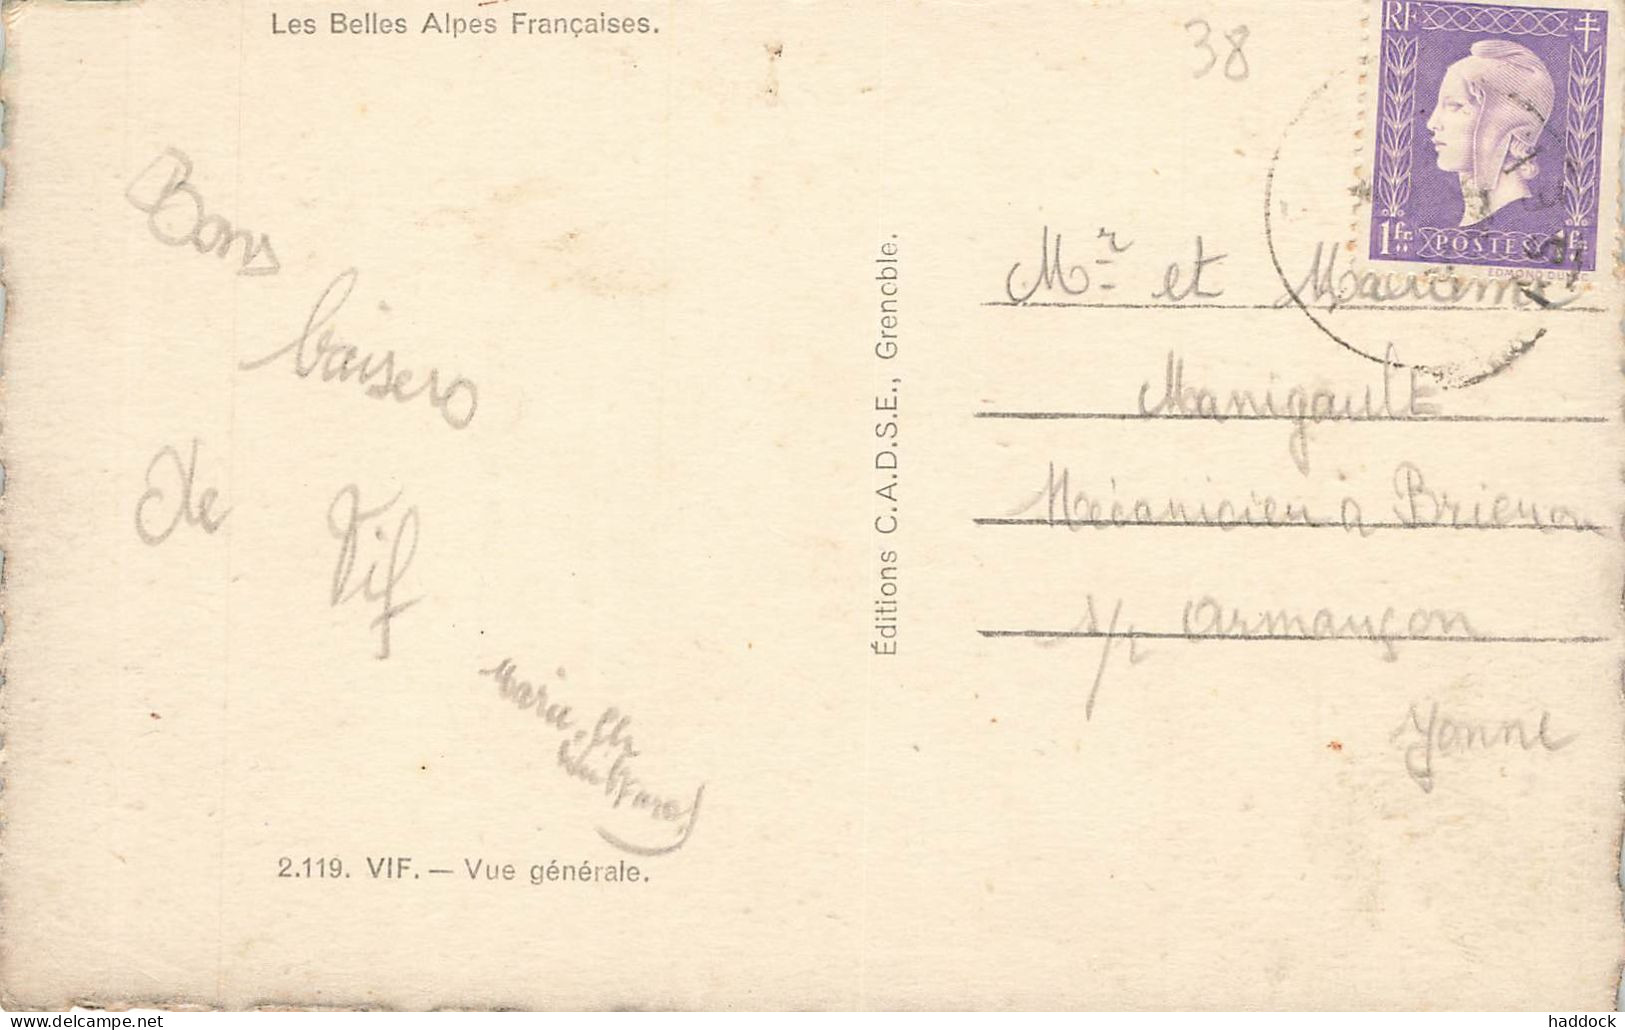 Les Belles Alpes Françaises.
38
RF
1fr. POSTES 1fr.
EDMOND DULAC
Bons
baisers
de Vif
Marie
2.119. VIF. — Vue générale.
Éditions C.A.D.S.E., Grenoble.
Mr et Madame
Manigault
Mécanicien a Brienon
s/ Armançon
Yonne
www.delcampe.net
haddock